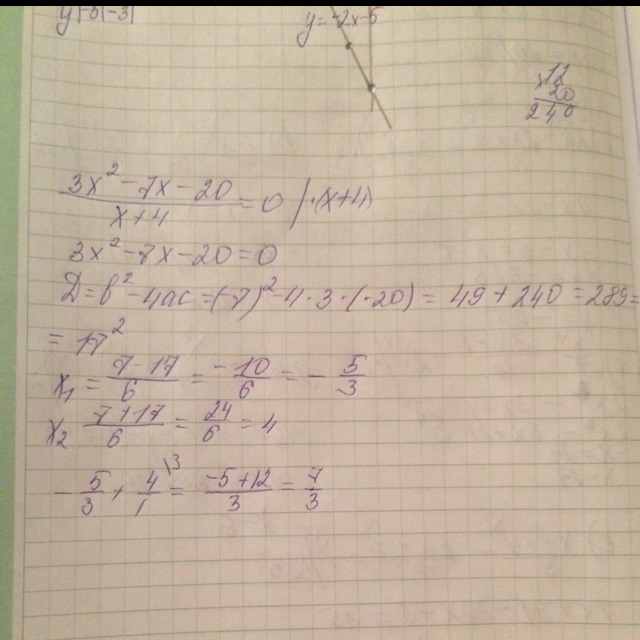 y|-5|-3|
y=-2x-5
×12
20
240
3x²-7x-20/x+4=0 /·(x+4)
3x²-7x-20=0
D=b²-4ac=(-7)²-4·3·(-20)=49+240=289=
=17²
x₁=7-17/6=-10/6=-5/3
x₂ 7+17/6=24/6=4
-5/3+4/1\3=-5+12/3=7/3